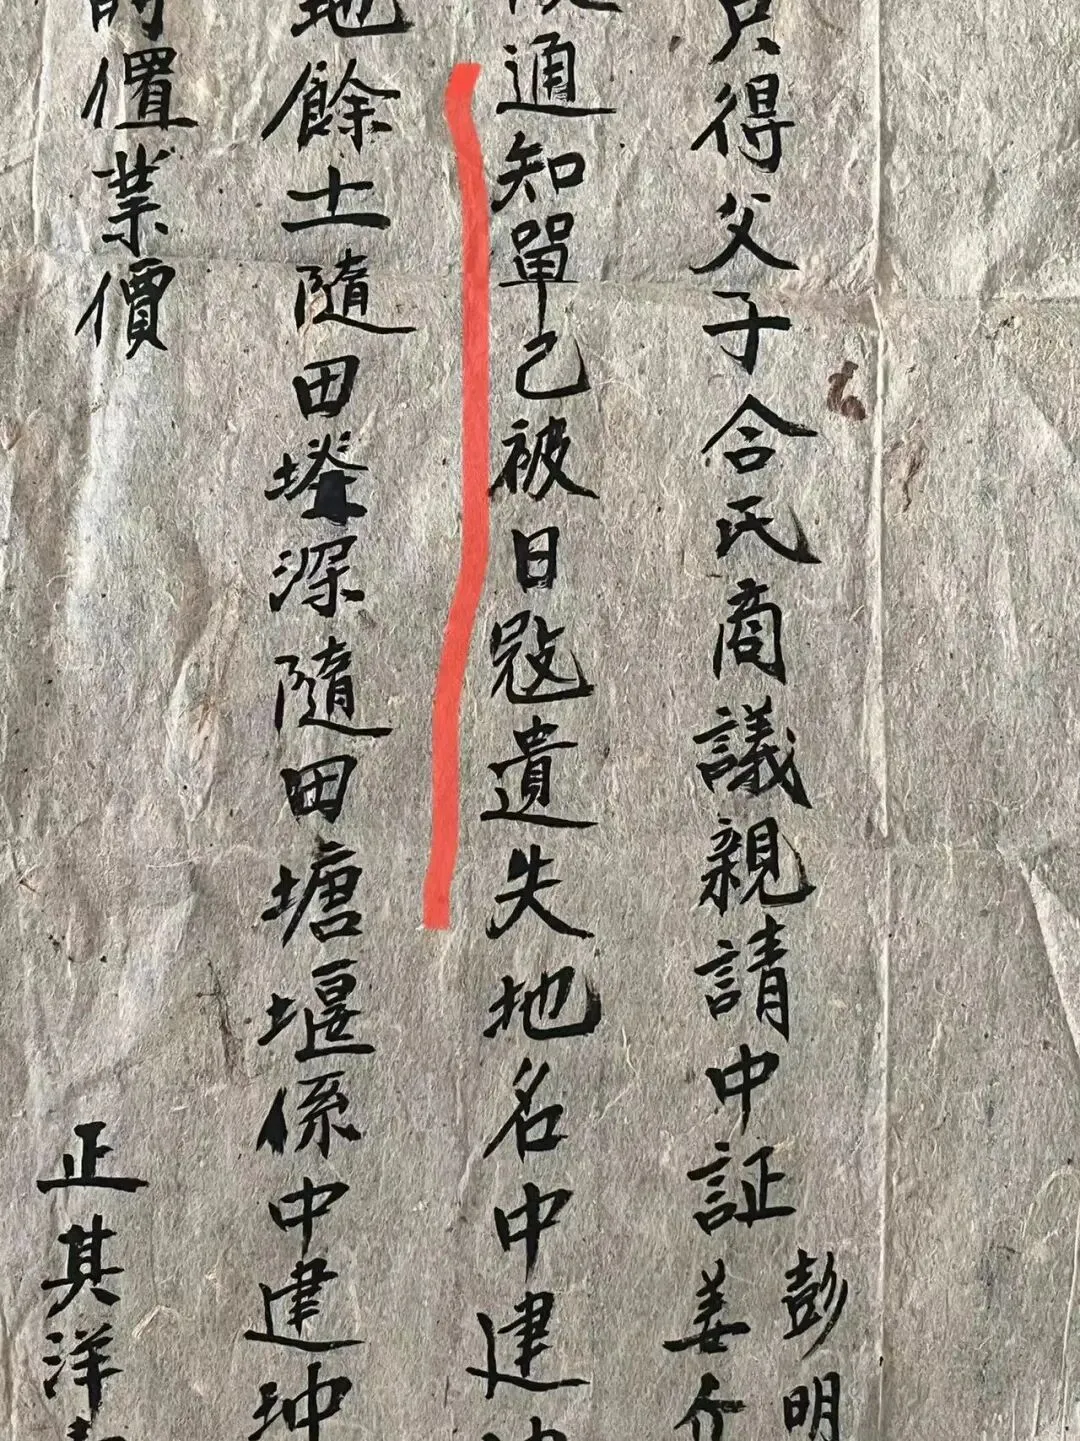 得父子合氏商議親請中証
彭明
姜介
通知單己被日寇遺失地名中建
地餘土隨田墢深隨田塘堰係中建坤
時值業價
正其洋